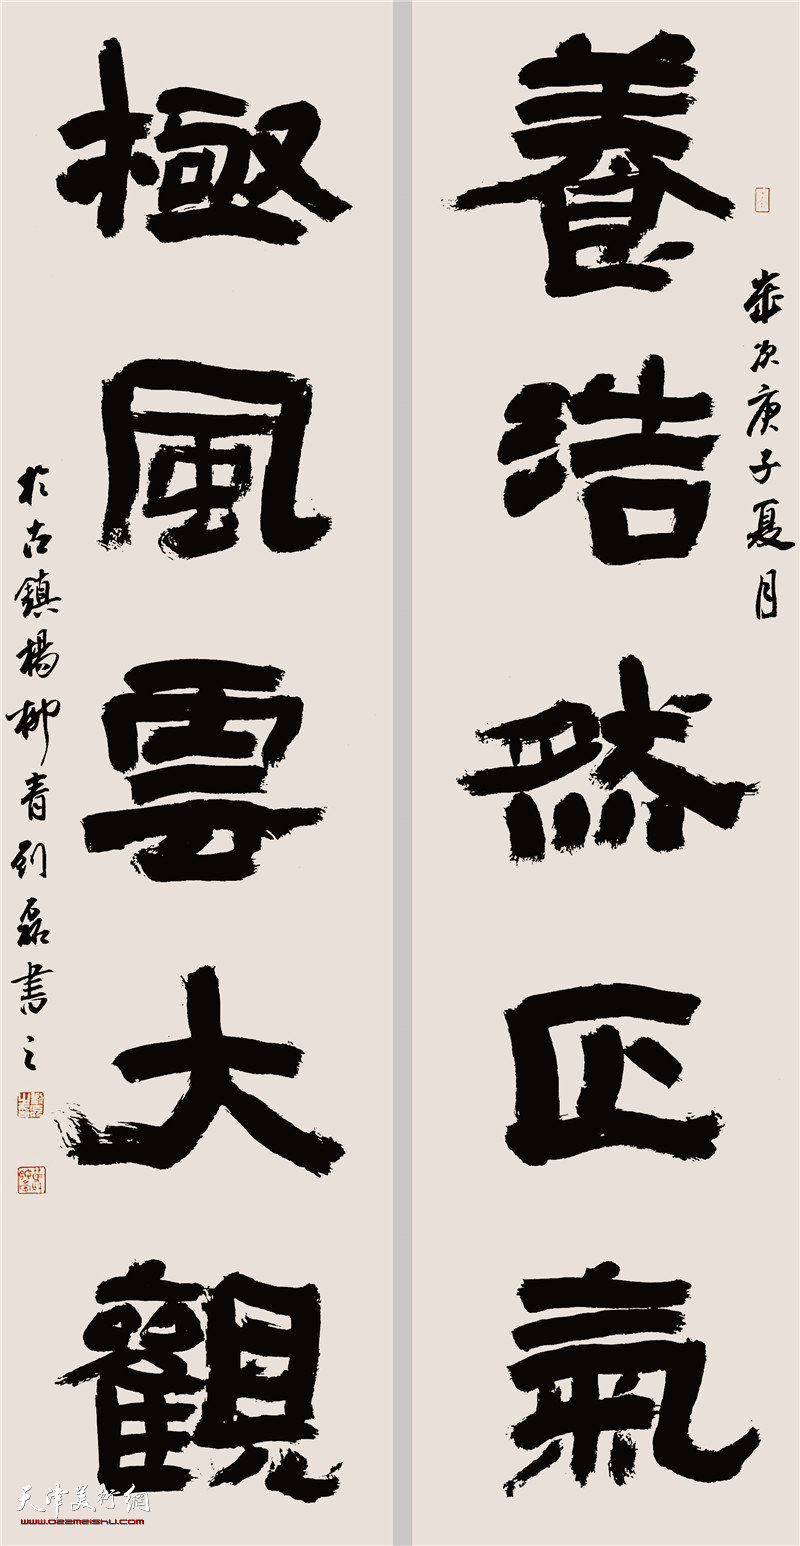 養浩然正氣
歲次庚子夏月
極風雲大觀
於古鎮楊柳青劉磊書之
天津美術網
www.022meishu.com